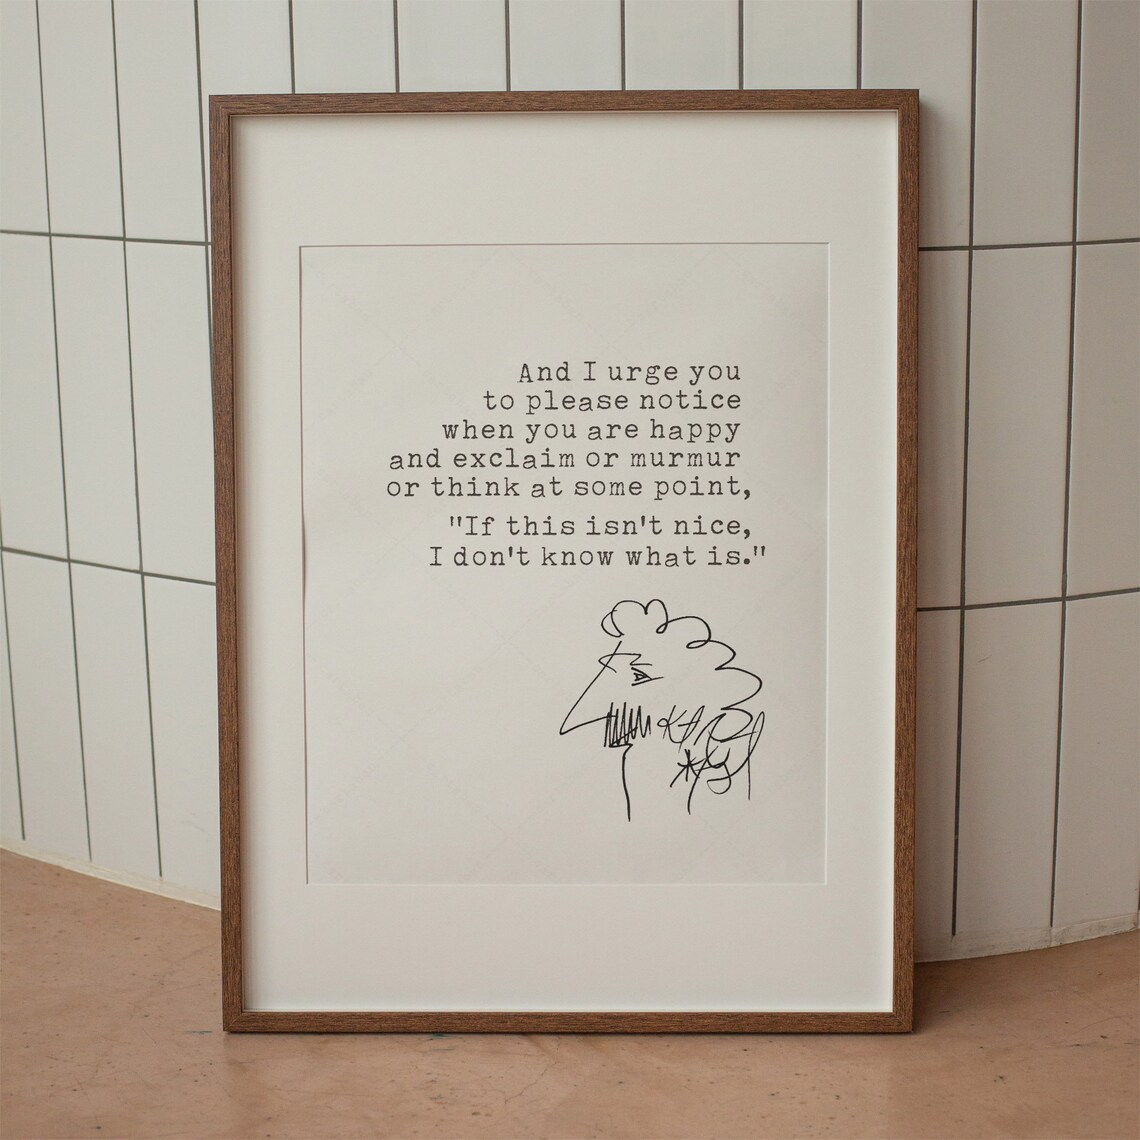 And I urge you
to please notice
when you are happy
and exclaim or murmur
or think at some point,
"If this isn't nice,
I don't know what is."